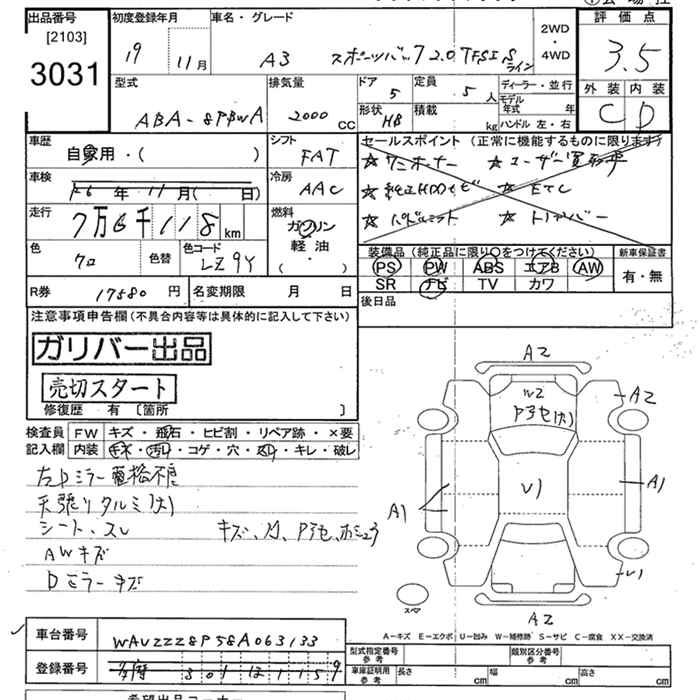 出品番号 初度登録年月 車名・グレード 2WD ・ 4WD 評価点
[2103]
3031
19 11月 A3 スポーツバック 2.0 TFSI Sライン 3.5
型式 排気量 ドア 定員 ディーラー・並行 外装 内装
5 5 人 モデル年式 年
ABA-8PBWA 2000 CC 形状 HB 積載 kg ハンドル 左・右 C D
車歴 シフト セールスポイント (正常に機能するものに限ります)
自家用・( ) FAT ☆ワンオーナー ☆ユーザー買取車
車検 冷房 ☆純正HDDナビ ☆ETC
年 11月( 日) AAC
走行 燃料 ☆パドルシフト
7万6千118km ガソリン
色 色替 色コード 軽油 装備品 (純正品に限り○をつけてください) 新車保証書
クロ LZ9Y ( ・ ) PS PW ABS エアB AW 有・無
R券 17580円 名変期限 月 日 SR ナビ TV カワ
後日品
注意事項申告欄 (不具合内容等は具体的に記入して下さい)
ガリバー出品
売切スタート
修復歴 有 〔箇所 〕
検査員 FW キズ・飛石・ヒビ割・リペア跡・×要
記入欄 内装 キズ・汚れ・コゲ・穴・スレ・キレ・破レ
左Dミラー電格不良
天張りタルミ(大)
シート、スレ キズ、凹、
AWキズ
Dミラーキズ
A2
W2
A2
U1
A1
A1
U1
スペア
A2
A-キズ E-エクボ U-凹み W-補修跡 S-サビ C-腐食 XX-交換済
車台番号 WAUZZZ8P58A063133 型式指定番号 参考 類別区分番号 参考
登録番号 多摩 301 車庫証明用 参考 長さ cm 幅 cm 高さ cm
希望出品コーナー